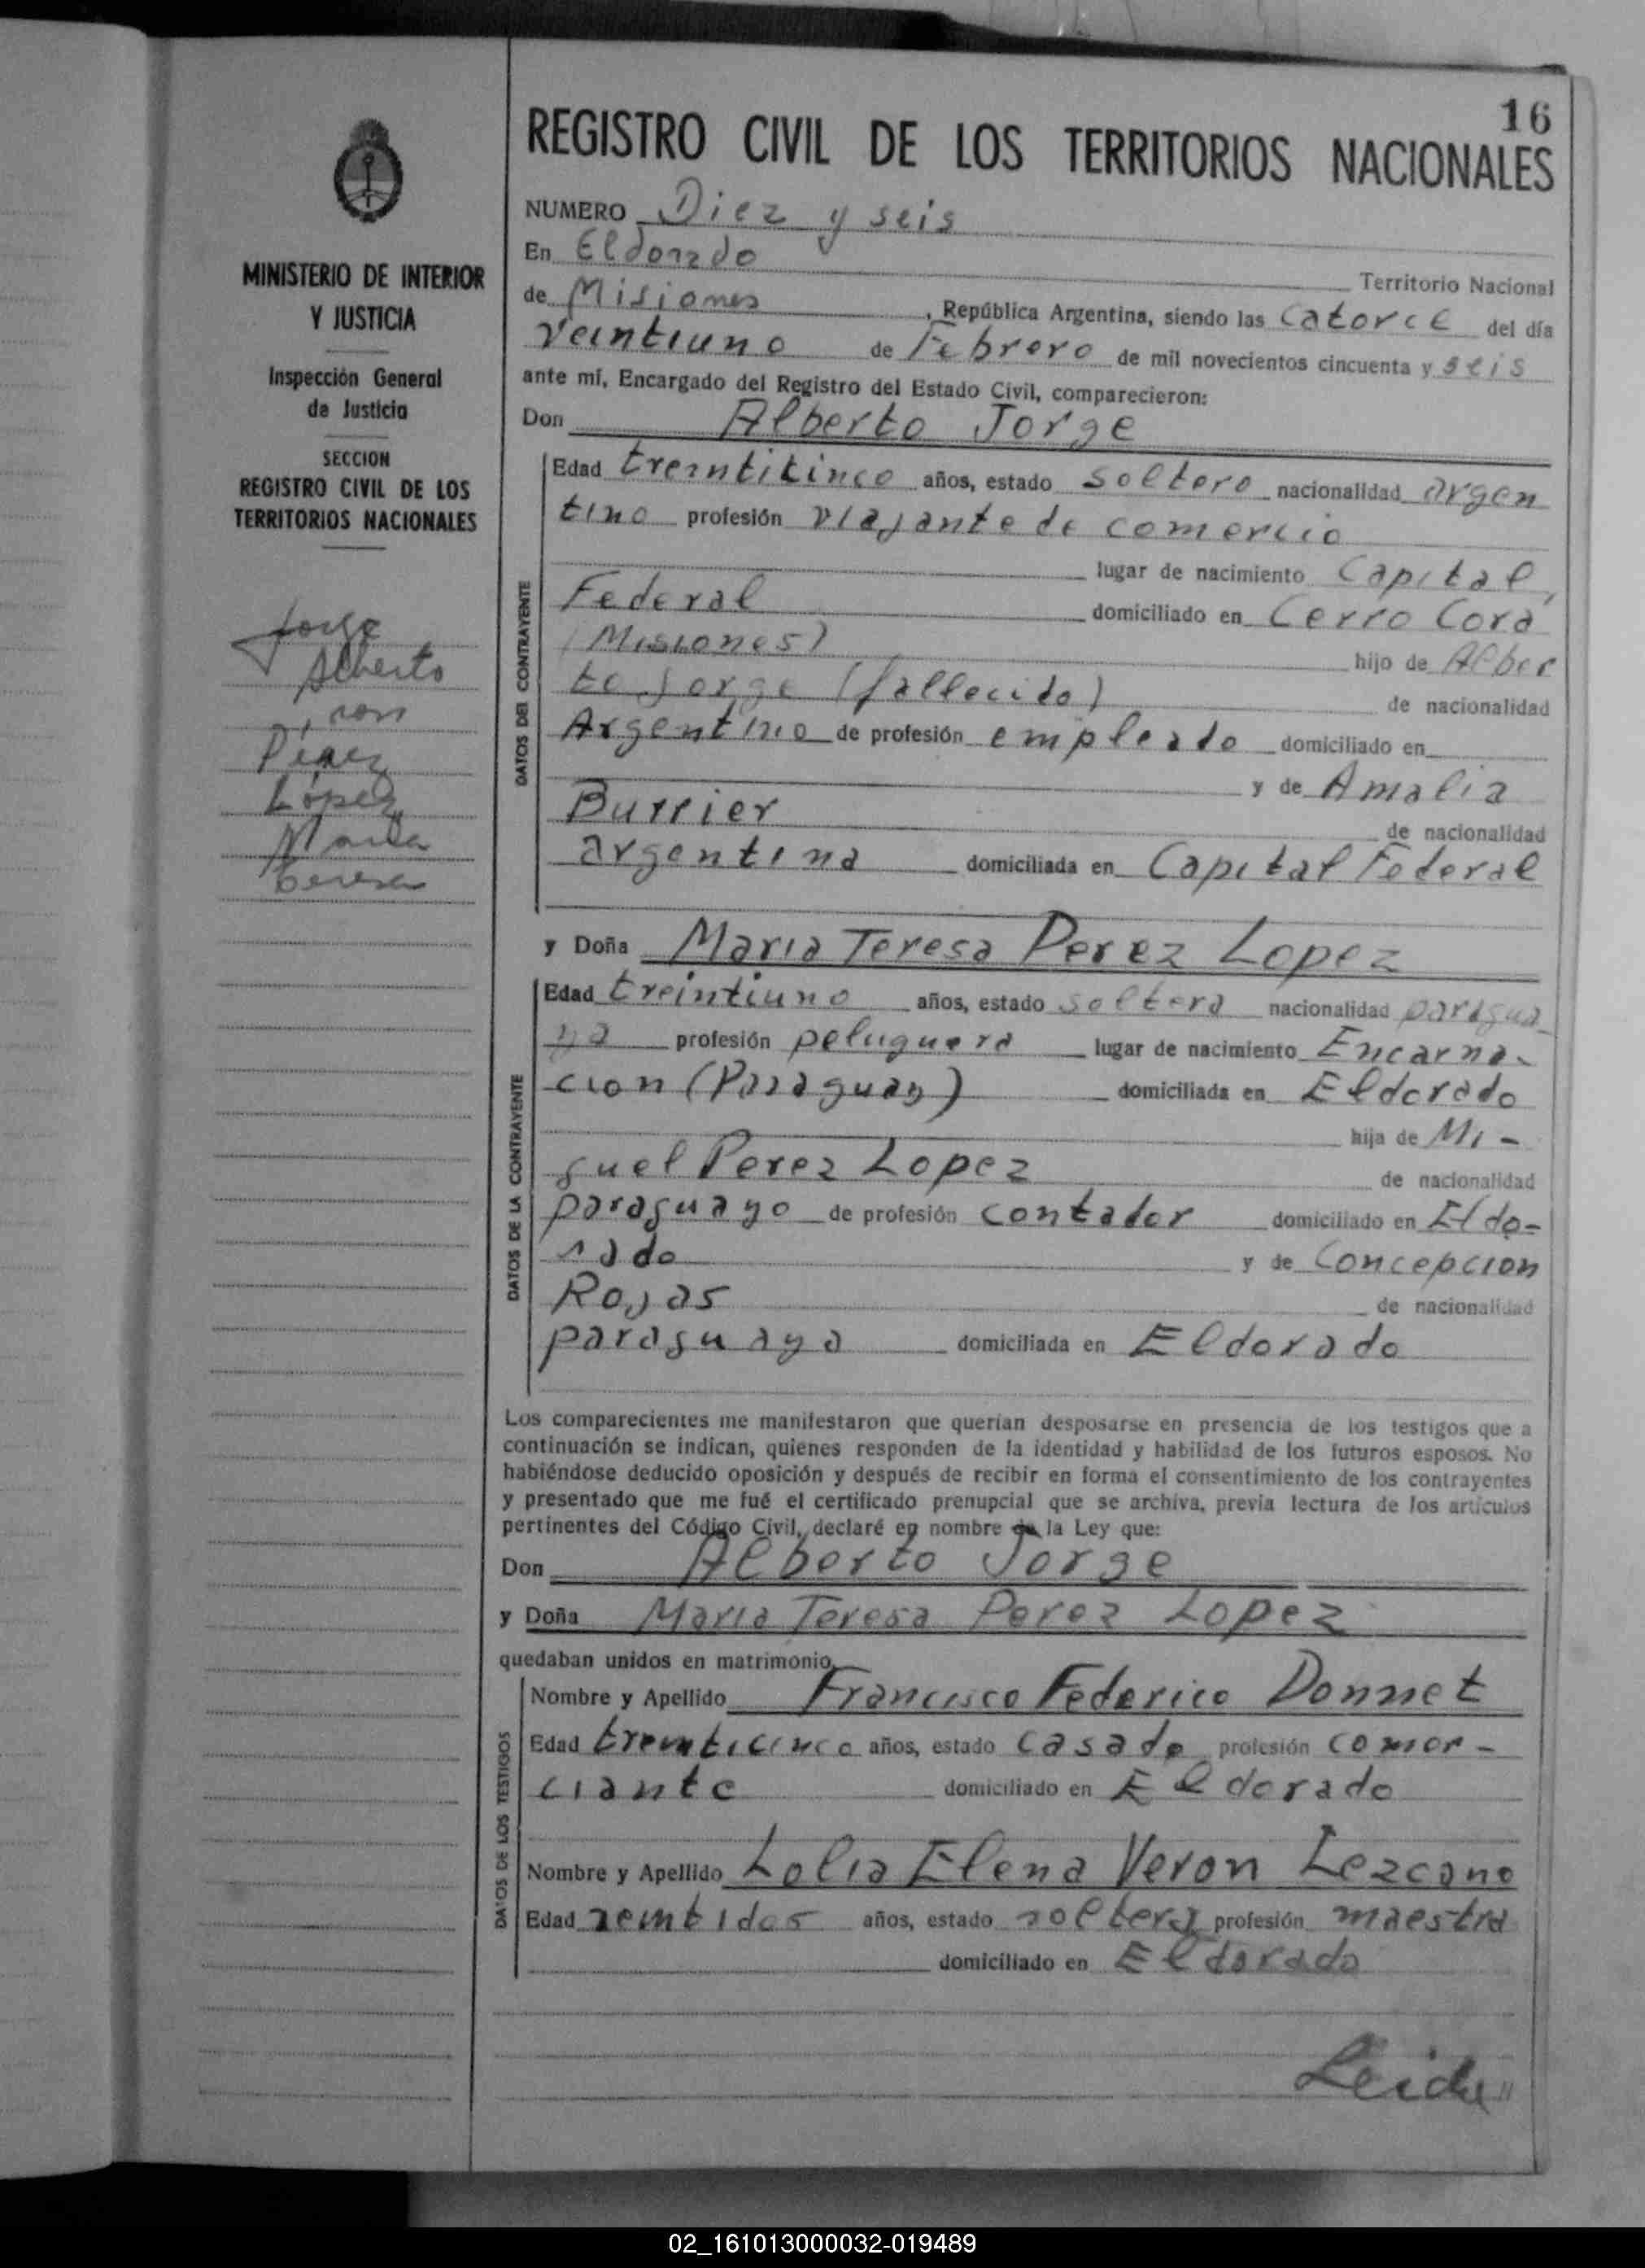 16
REGISTRO CIVIL DE LOS TERRITORIOS NACIONALES
MINISTERIO DE INTERIOR
Y JUSTICIA
Inspección General
de Justicia
SECCION
REGISTRO CIVIL DE LOS
TERRITORIOS NACIONALES
Jorge
Alberto
con
Pérez
López
María
teresa
NUMERO Diez y seis
En Eldorado Territorio Nacional
de Misiones, República Argentina, siendo las catorce del día
veintiuno de Febrero de mil novecientos cincuenta y seis
ante mí, Encargado del Registro del Estado Civil, comparecieron:
Don Alberto Jorge
DATOS DEL CONTRAYENTE
Edad treinticinco años, estado soltero nacionalidad argen
tino profesión viajante de comercio
lugar de nacimiento Capital
Federal domiciliado en Cerro Corá
(Misiones) hijo de Alber
to Jorge (fallecido) de nacionalidad
Argentino de profesión empleado domiciliado en
y de Amalia
Burrier de nacionalidad
argentina domiciliada en Capital Federal
y Doña Maria Teresa Perez Lopez
DATOS DE LA CONTRAYENTE
Edad treintiuno años, estado soltera nacionalidad paragua
ya profesión peluquera lugar de nacimiento Encarna-
cion (Paraguay) domiciliada en Eldorado
hija de Mi-
guel Perez Lopez de nacionalidad
paraguayo de profesión contador domiciliado en Eldo-
rado y de Concepcion
Rojas de nacionalidad
paraguaya domiciliada en Eldorado
Los comparecientes me manifestaron que querían desposarse en presencia de los testigos que a
continuación se indican, quienes responden de la identidad y habilidad de los futuros esposos. No
habiéndose deducido oposición y después de recibir en forma el consentimiento de los contrayentes
y presentado que me fué el certificado prenupcial que se archiva, previa lectura de los artículos
pertinentes del Código Civil, declaré en nombre de la Ley que:
Don Alberto Jorge
y Doña Maria Teresa Perez Lopez
quedaban unidos en matrimonio.
DATOS DE LOS TESTIGOS
Nombre y Apellido Francisco Federico Donnet
Edad treinticinco años, estado casado profesión comer-
ciante domiciliado en Eldorado
Nombre y Apellido Lolia Elena Veron Lezcano
Edad veintidos años, estado soltera profesión maestra
domiciliado en Eldorado
02_161013000032-019489